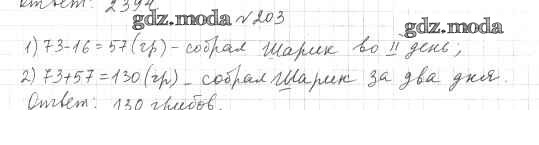 Ответ: 2394
gdz.moda №203 gdz.moda
1) 73-16=57(гр) - собрал Шарик во II день;
2) 73+57=130(гр) - собрал Шарик за два дня.
Ответ: 130 грибов.